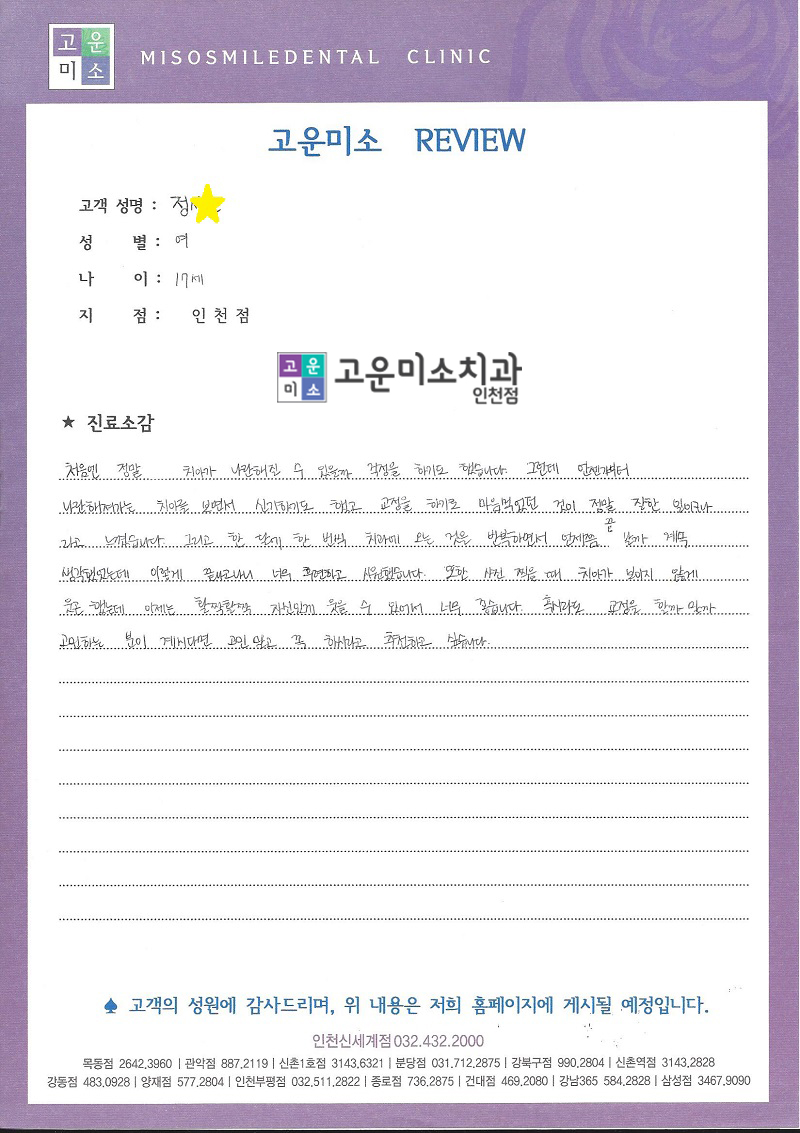 고운
미소
MISOSMILEDENTAL CLINIC
고운미소 REVIEW
고객 성명 : 정
성 별 : 여
나 이 : 17세
지 점 : 인천점
고운
미소
고운미소치과
인천점
★ 진료소감
처음엔 정말 치아가 나란해진 수 있을까 걱정을 하기도 했습니다. 그런데 언젠가부터
나란해져가는 치아를 보면서 신기하기도 했고 교정을 하기로 마음먹었던 것이 정말 잘한 일이구나
라고 느꼈습니다. 그리고 한 달에 한 번씩 치과에 오는 것은 반복하면서 언제쯤 끝날까 계속
생각했었는데 이렇게 끝나고나니 너무 후련하고 시원했습니다. 또한 사진 찍을 때 치아가 보이지 않게
웃곤 했는데 이제는 활짝활짝 자신있게 웃을 수 있어서 너무 좋습니다. 혹시라도 교정을 할까 말까
고민하는 분이 계시다면 고민 말고 꼭 하시라고 추천하고 싶습니다.
♠ 고객의 성원에 감사드리며, 위 내용은 저희 홈페이지에 게시될 예정입니다.
인천신세계점 032.432.2000
목동점 2642.3960 | 관악점 887.2119 | 신촌1호점 3143.6321 | 분당점 031.712.2875 | 강북구점 990.2804 | 신촌역점 3143.2828
강동점 483.0928 | 양재점 577.2804 | 인천부평점 032.511.2822 | 종로점 736.2875 | 건대점 469.2080 | 강남365 584.2828 | 삼성점 3467.9090